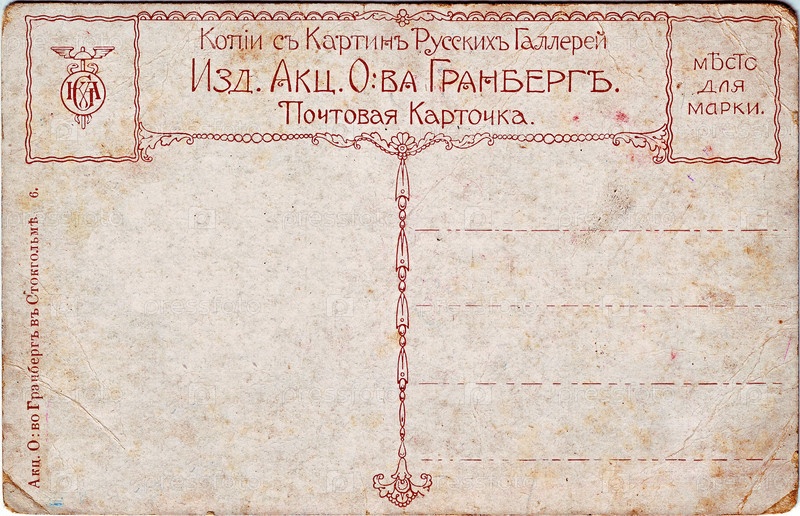 Копіи съ Картинъ Русскихъ Галлерей
Изд. Акц. О:ва Гранбергъ.
Почтовая Карточка.
мѣсто
для
марки.
Акц. О:во Гранбергъ въ Стокгольмѣ 6.